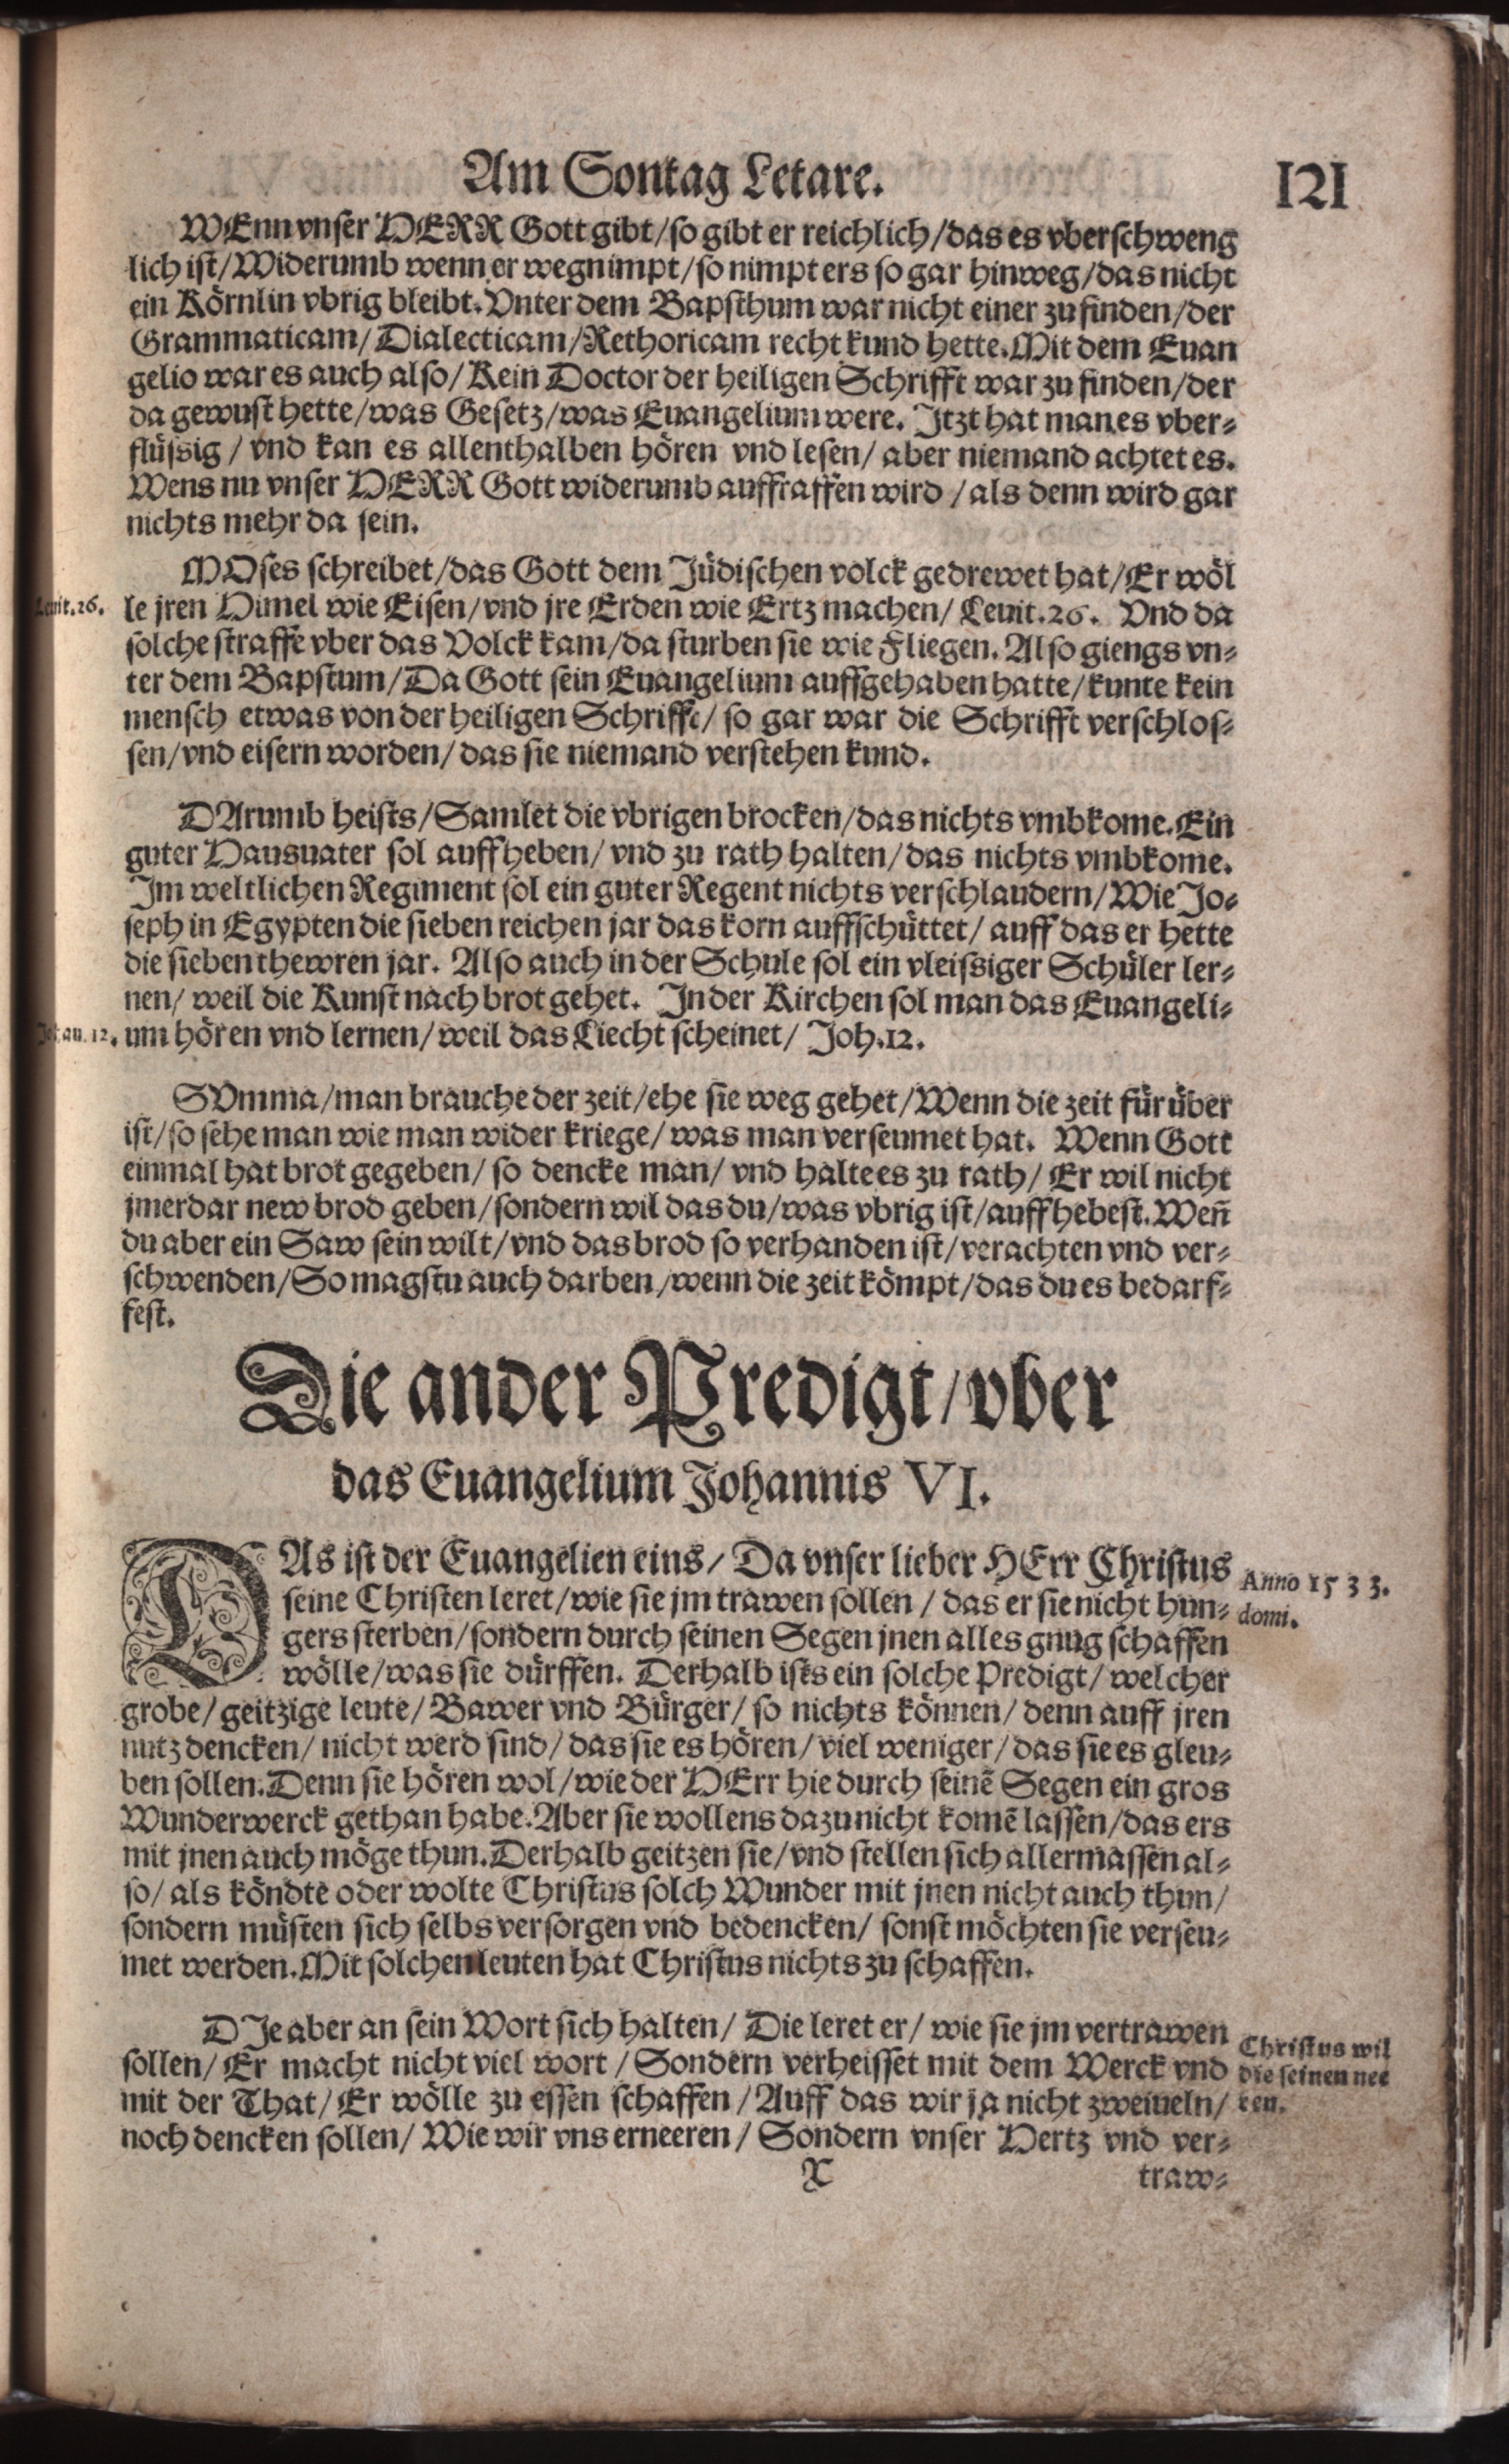 Am Sontag Letare. 121
WEnn vnser HERR Gott gibt/so gibt er reichlich/das es vberschweng
lich ist/Widerumb wenn er wegnimpt/so nimpt ers so gar hinweg/das nicht
ein Körnlin vbrig bleibt. Vnter dem Bapsthum war nicht einer zu finden/der
Grammaticam/Dialecticam/Rethoricam recht kund hette. Mit dem Euan
gelio war es auch also/Kein Doctor der heiligen Schrifft war zu finden/der
da gewust hette/was Gesetz/was Euangelium were. Itzt hat man es vber-
flüssig/vnd kan es allenthalben hören vnd lesen/aber niemand achtet es.
Wens nu vnser HERR Gott widerumb auffraffen wird/als denn wird gar
nichts mehr da sein.
MOses schreibet/das Gott dem Jüdischen volck gedrewet hat/Er wöl
Leuit. 26.
le jren Himel wie Eisen/vnd jre Erden wie Ertz machen/Leuit. 26. Vnd da
solche straffe vber das Volck kam/da sturben sie wie Fliegen. Also giengs vn-
ter dem Bapstum/Da Gott sein Euangelium auffgehaben hatte/kunte kein
mensch etwas von der heiligen Schrifft/so gar war die Schrifft verschlos-
sen/vnd eisern worden/das sie niemand verstehen kund.
DArumb heists/Samlet die vbrigen brocken/das nichts vmbkome. Ein
guter Hausuater sol auffheben/vnd zu rath halten/das nichts vmbkome.
Im weltlichen Regiment sol ein guter Regent nichts verschlaudern/Wie Jo-
seph in Egypten die sieben reichen jar das korn auffschüttet/auff das er hette
die sieben thewren jar. Also auch in der Schule sol ein vleissiger Schüler ler-
nen/weil die Kunst nach brot gehet. In der Kirchen sol man das Euangeli-
Johan. 12.
um hören vnd lernen/weil das Liecht scheinet/Joh. 12.
SVmma/man brauche der zeit/ehe sie weg gehet/Wenn die zeit für über
ist/so sehe man wie man wider kriege/was man verseumet hat. Wenn Gott
einmal hat brot gegeben/so dencke man/vnd halte es zu rath/Er wil nicht
jmerdar new brod geben/sondern wil das du/was vbrig ist/auffhebest. Weñ
du aber ein Saw sein wilt/vnd das brod so verhanden ist/verachten vnd ver-
schwenden/So magstu auch darben/wenn die zeit kömpt/das du es bedarf-
fest.
Die ander Predigt/vber
das Euangelium Johannis VI.
DAs ist der Euangelien eins/Da vnser lieber HErr Christus
seine Christen leret/wie sie jm trawen sollen/das er sie nicht hun-
gers sterben/sondern durch seinen Segen jnen alles gnug schaffen
wölle/was sie dürffen. Derhalb ists ein solche Predigt/welcher
Anno 1533.
domi.
grobe/geitzige leute/Bawer vnd Bürger/so nichts können/denn auff jren
nutz dencken/nicht werd sind/das sie es hören/viel weniger/das sie es gleu-
ben sollen. Denn sie hören wol/wie der HErr hie durch seinẽ Segen ein gros
Wunderwerck gethan habe. Aber sie wollens dazu nicht komẽ lassen/das ers
mit jnen auch möge thun. Derhalb geitzen sie/vnd stellen sich allermassen al-
so/als köndte oder wolte Christus solch Wunder mit jnen nicht auch thun/
sondern müsten sich selbs versorgen vnd bedencken/sonst möchten sie verseu-
met werden. Mit solchen leuten hat Christus nichts zu schaffen.
DJe aber an sein Wort sich halten/Die leret er/wie sie jm vertrawen
sollen/Er macht nicht viel wort/Sondern verheisset mit dem Werck vnd
mit der That/Er wölle zu essen schaffen/Auff das wir ja nicht zweiueln/
noch dencken sollen/Wie wir vns erneeren/Sondern vnser Hertz vnd ver-
Christus wil
die seinen nee
ren.
X traw-